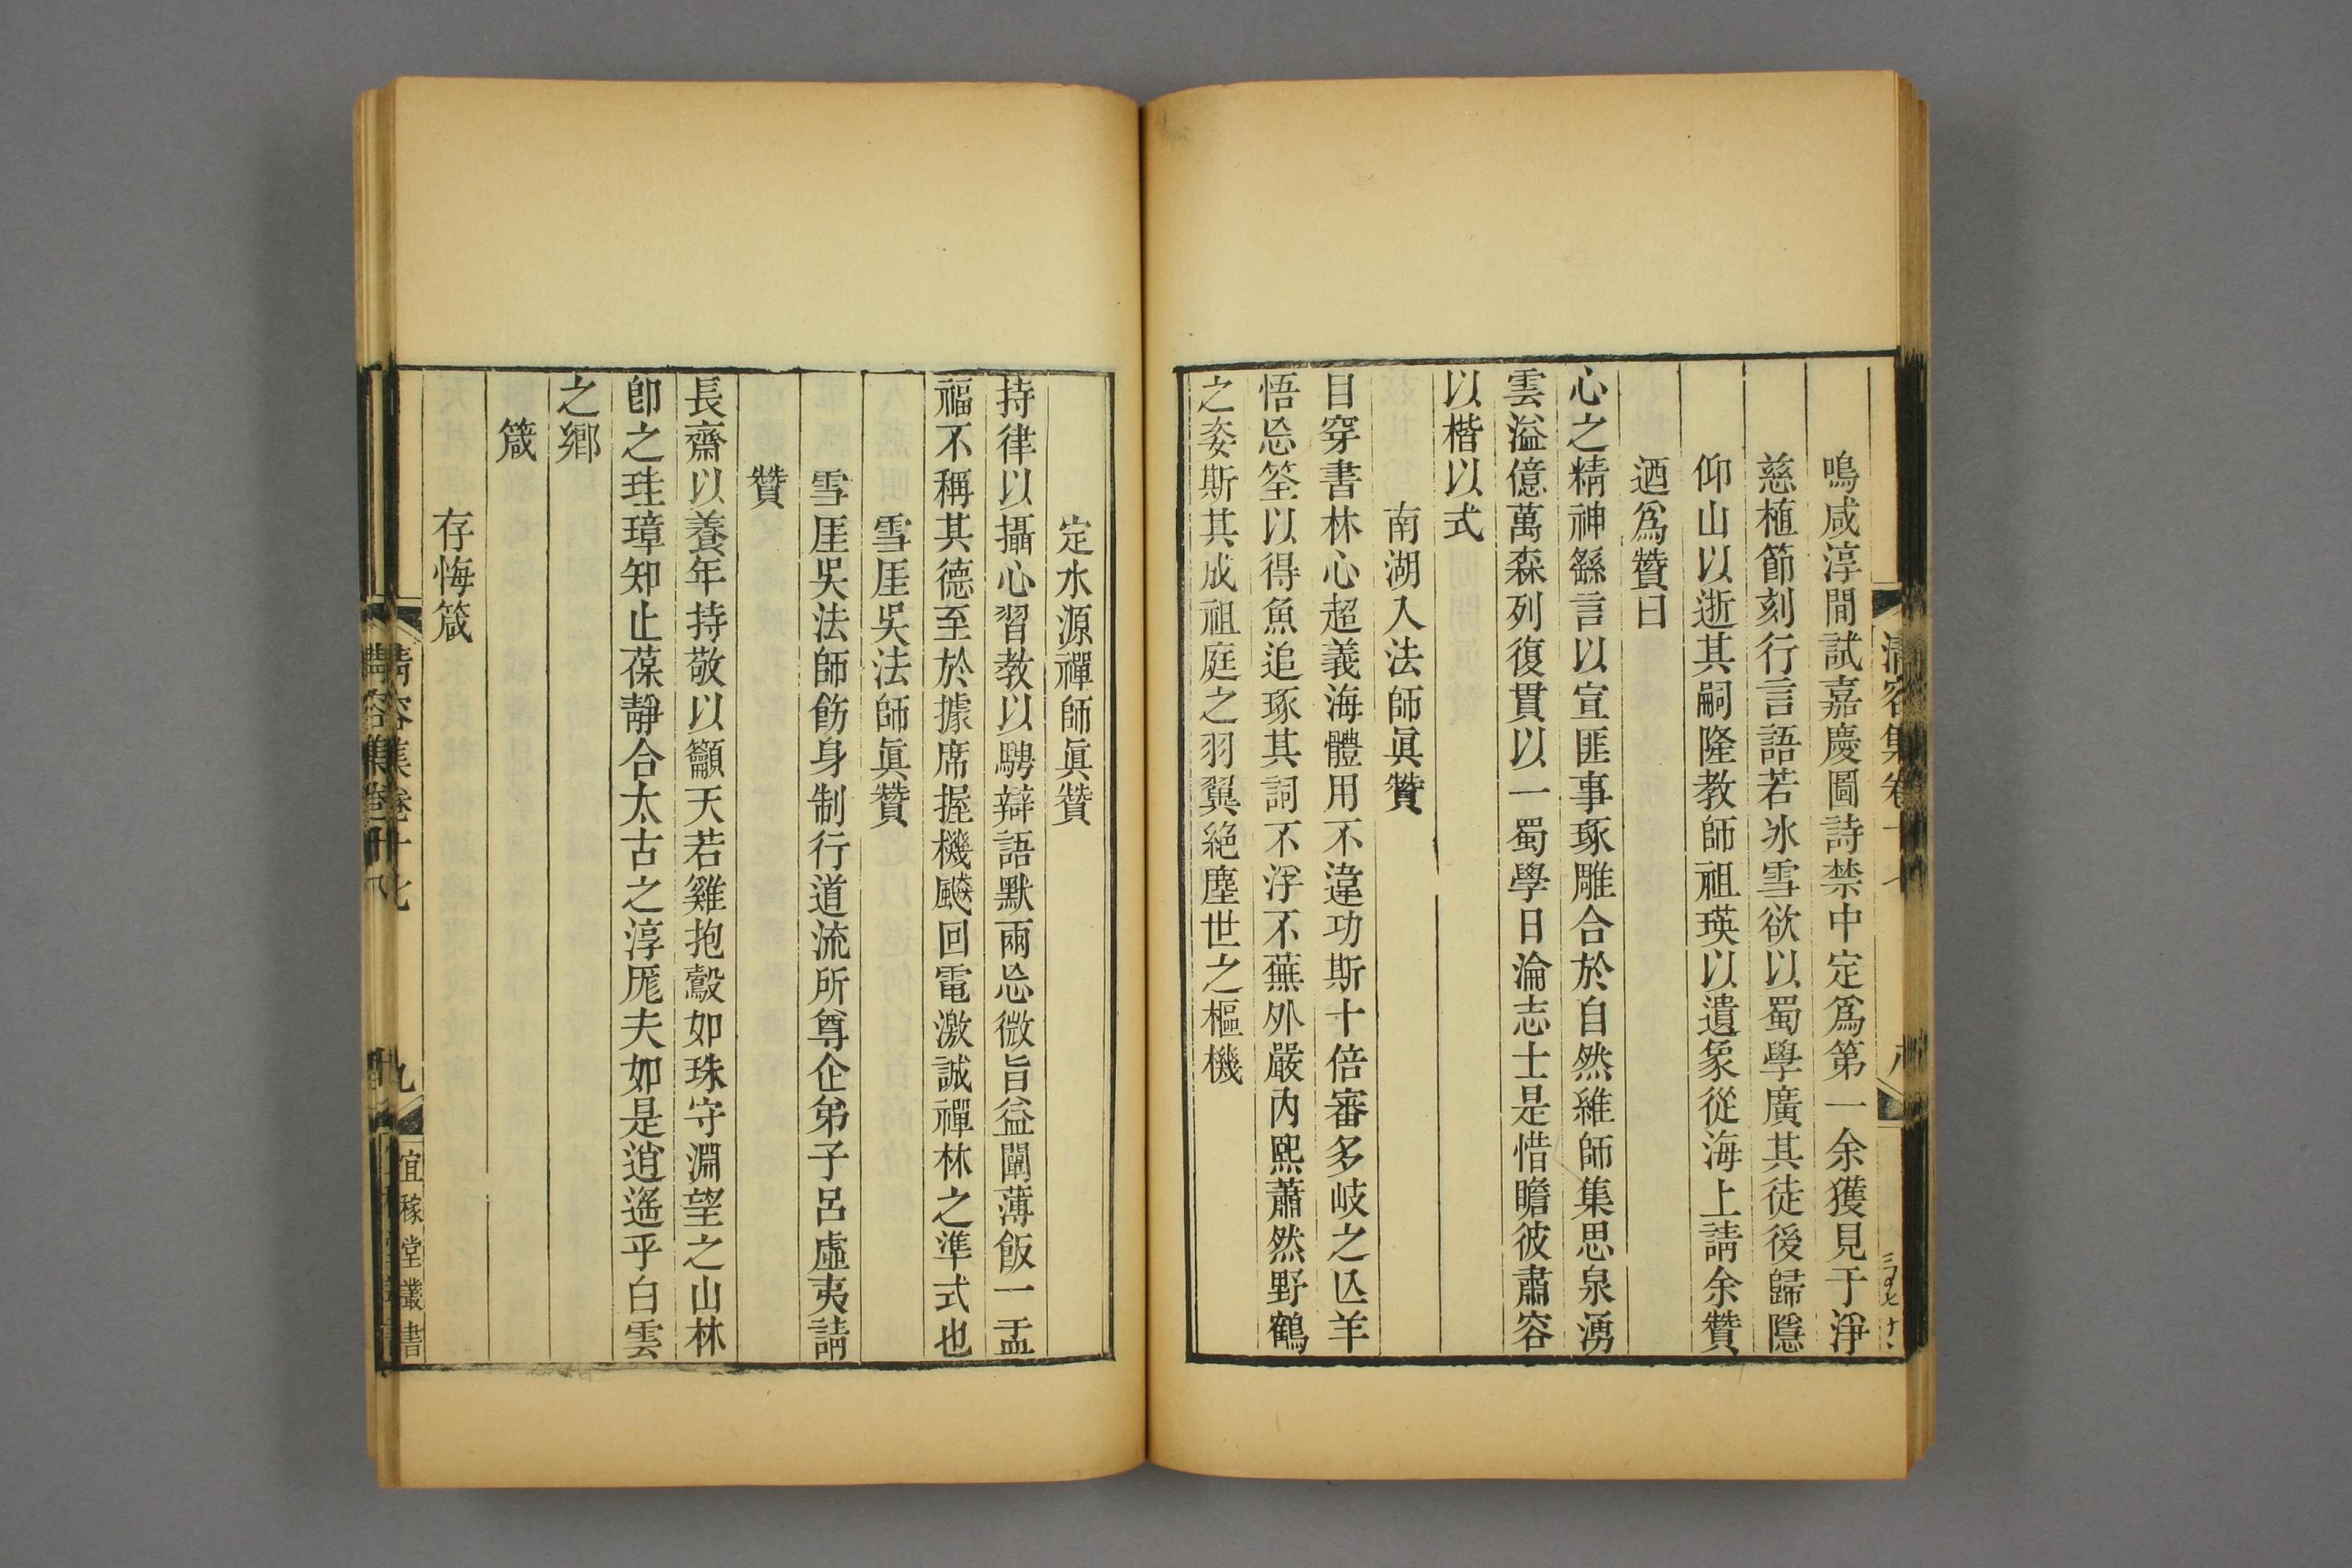 鳴咸淳間試嘉慶圖詩禁中定爲第一余獲見于淨
慈植節刻行言語若冰雪欲以蜀學廣其徒後歸隱
仰山以逝其嗣隆教師祖瑛以遺象從海上請余贊
迺爲贊曰
心之精神繇言以宣匪事琢雕合於自然維師集思泉湧
雲溢億萬森列復貫以一蜀學日淪志士是惜瞻彼肅容
以楷以式
南湖入法師眞贊
目穿書林心超義海體用不違功斯十倍審多岐之亾羊
悟忘筌以得魚追琢其詞不浮不蕪外嚴內熙蕭然野鶴
之姿斯其成祖庭之羽翼絕塵世之樞機
定水源禪師眞贊
持律以攝心習教以騁辯語默兩忘微旨益闡薄飯一盂
福不稱其德至於據席握機飇回電激誠禪林之準式也
雪厓吳法師眞贊
雪厓吳法師飭身制行道流所尊企弟子呂虛夷請
贊
長齋以養年持敬以籲天若雞抱鷇如珠守淵望之山林
卽之珪璋知止葆靜合太古之淳厖夫如是逍遙乎白雲
之鄉
箴
存悔箴
清容集卷十七
九
宜稼堂叢書